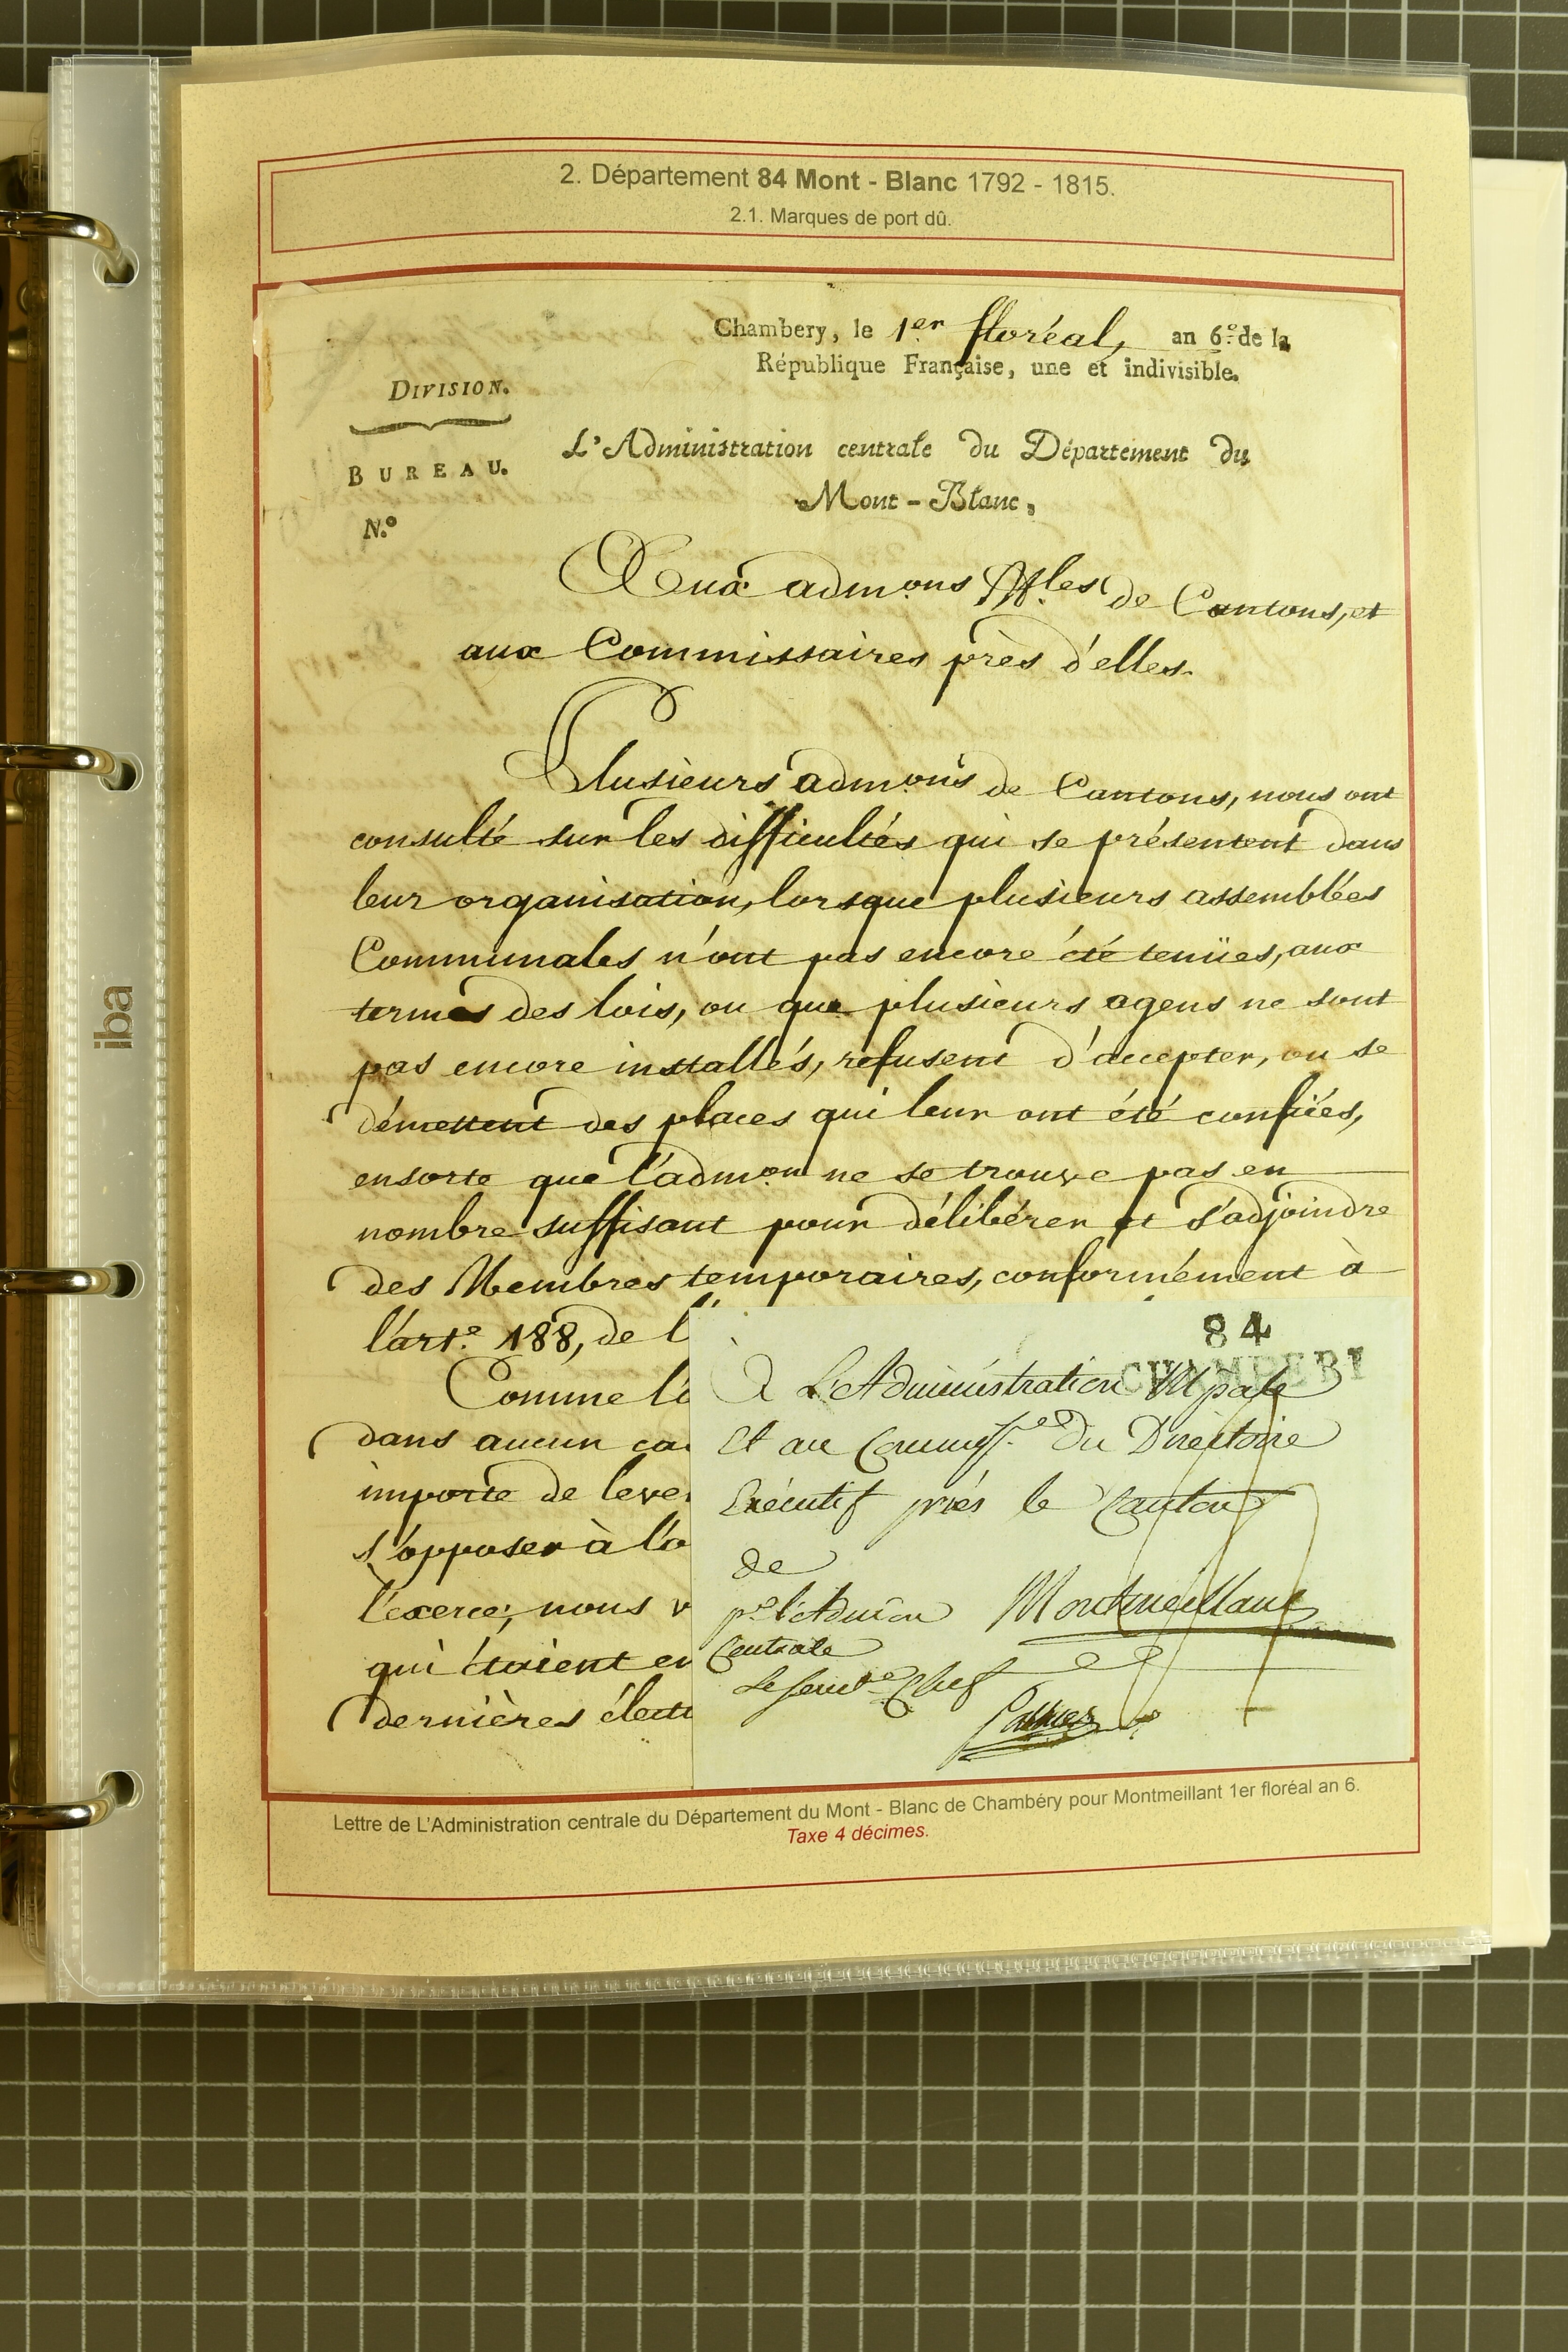 2. Département 84 Mont - Blanc 1792 - 1815.
2.1. Marques de port dû.
Chambery, le 1er floréal, an 6e de la
République Française, une et indivisible.
DIVISION.
BUREAU.
N.°
L'Administration centrale du Département du
Mont-Blanc,
Aux admons Mles de Cantons, et
aux Commissaires près d'elles.
Plusieurs admons de Cantons, nous ont
consulté sur les difficultés qui se présentent dans
leur organisation, lorsque plusieurs assemblées
Communales n'ont pas encore été tenües, aux
termes des lois, ou que plusieurs agens ne sont
pas encore installés, refusent d'accepter, ou se
démettent des places qui leur ont été confiées,
ensorte que l'admon ne se trouve pas en
nombre suffisant pour délibérer et s'adjoindre
des Membres temporaires, conformément à
l'arte. 188, de l'
Comme l'a
dans aucun ca
importe de lever
s'opposer à l'o
l'exerce, nous v
qui étaient en
dernières électi
84
CHAMBERY
A L'Administration Mpale
Et au Commissre du Directoire
Exécutif près le Canton
de
Montmeillant
pr l'Admon
Centrale
Le Chef
iba
Lettre de L'Administration centrale du Département du Mont - Blanc de Chambéry pour Montmeillant 1er floréal an 6.
Taxe 4 décimes.